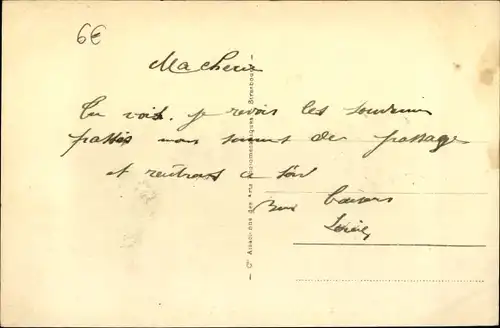 6€
Ma Cherie
Tu vois. je revois les souvenirs
passés nous sommes de passage
et rentrons ce soir
Bons baisers
— Cie Alsacienne des Arts Photomécaniques Strasbourg —